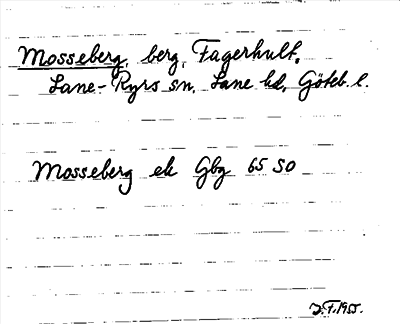 Mosseberg, berg, Fagerhult,
Lane-Ryrs sn, Lane hd, Göteb. l.
Mosseberg ek Gbg 65 SO
J.F. 1955.